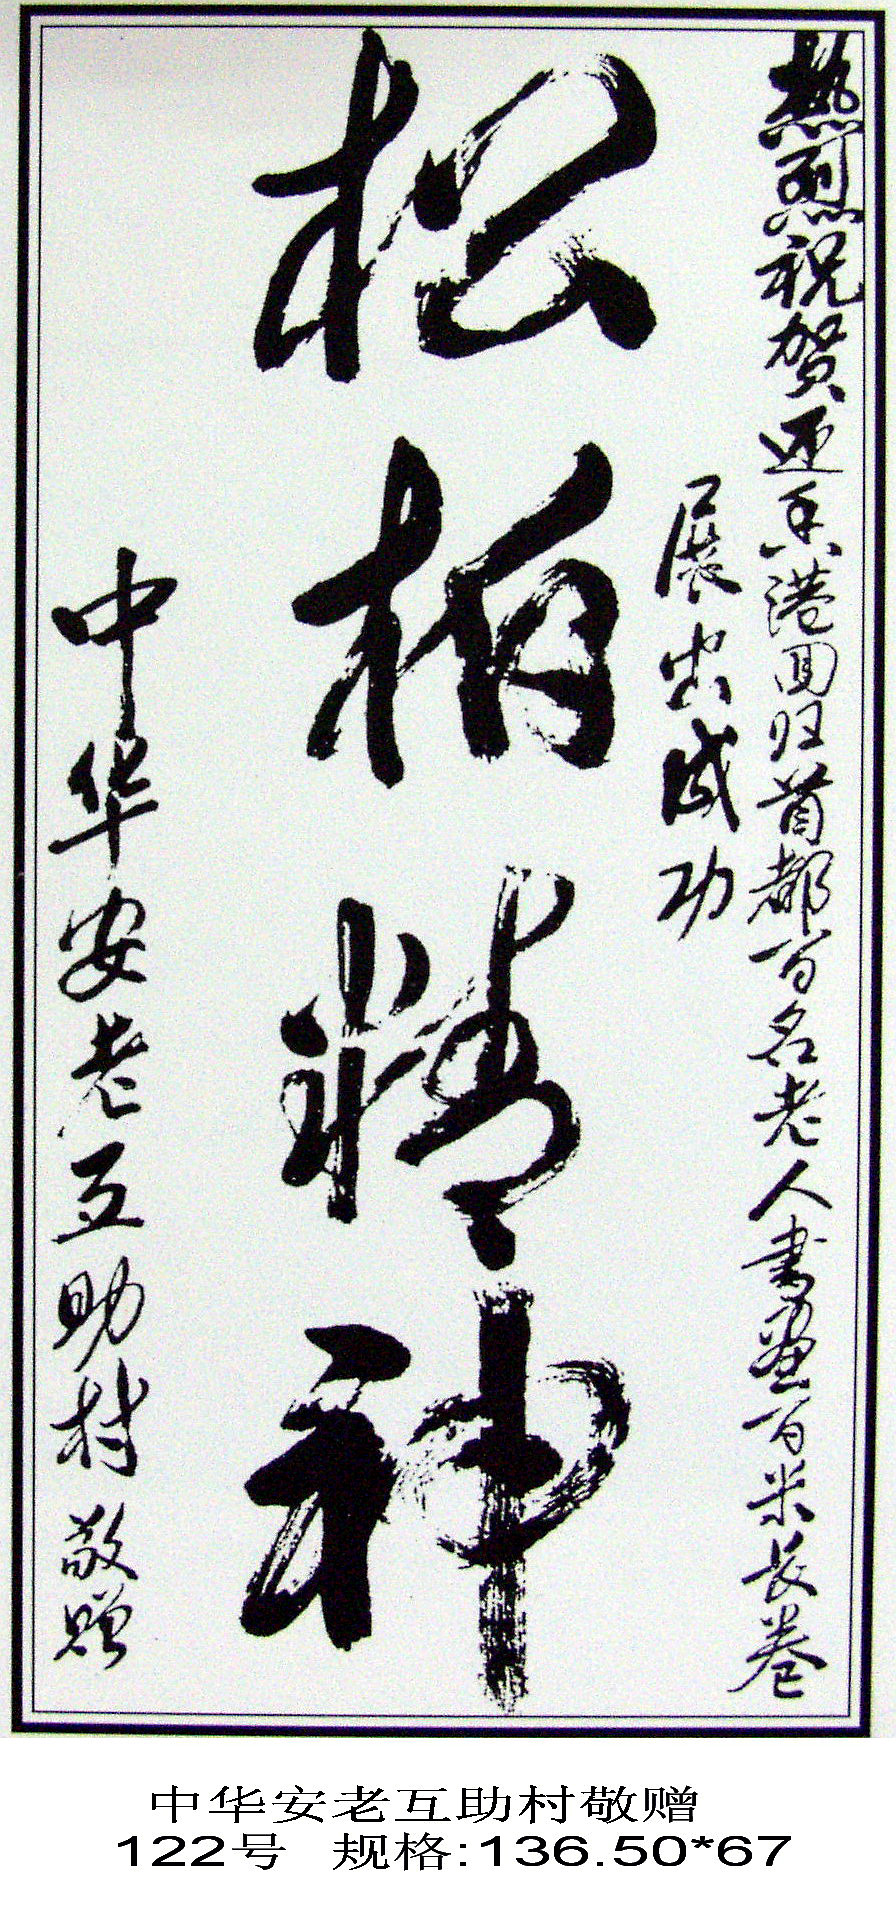 热烈祝贺迎香港回归首都百名老人书画百米长卷
展出成功
松柏精神
中华安老互助村 敬赠
中华安老互助村敬赠
122号 规格:136.50*67